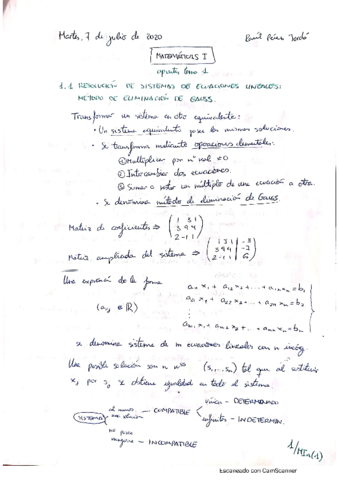 Martes, 7 de julio de 2020
MATEMÁTICAS I
apuntes tema 1
1.1 RESOLUCIÓN DE SISTEMAS DE ECUACIONES LINEALES:
MÉTODO DE ELIMINACIÓN DE GAUSS.
Transformar un sistema en otro equivalente:
• Un sistema equivalente posee las mismas soluciones.
• Se transforma mediante operaciones elementales:
① Multiplicar por nº real ≠0
② Intercambiar dos ecuaciones.
③ Sumar o restar un múltiplo de una ecuación a otra.
• Se denomina método de eliminación de Gauss.
Matriz de coeficientes ⇒ ( 1 3 1
3 9 4
2 -1 1 )
Matriz ampliada del sistema ⇒ ( 1 3 1 | -3
3 9 4 | -7
2 -1 1 | 6 )
Una expresión de la forma
(aij ∈ ℝ)
a11 x1 + a12 x2 + ... + a1n xn = b1
a21 x1 + a22 x2 + ... + a2n xn = b2
⋮
am1 x1 + am2 x2 + ... + amn xn = bm
se denomina sistema de m ecuaciones lineales con n incóg.
Una posible solución son n nos (s1,...,sn) tal que al sustituir
xj por sj se obtiene igualdad en todo el sistema.
SISTEMA
al menos una solución — COMPATIBLE
única — DETERMINADO
infinitas — INDETERMIN.
no posee ninguna — INCOMPATIBLE
Escaneado con CamScanner